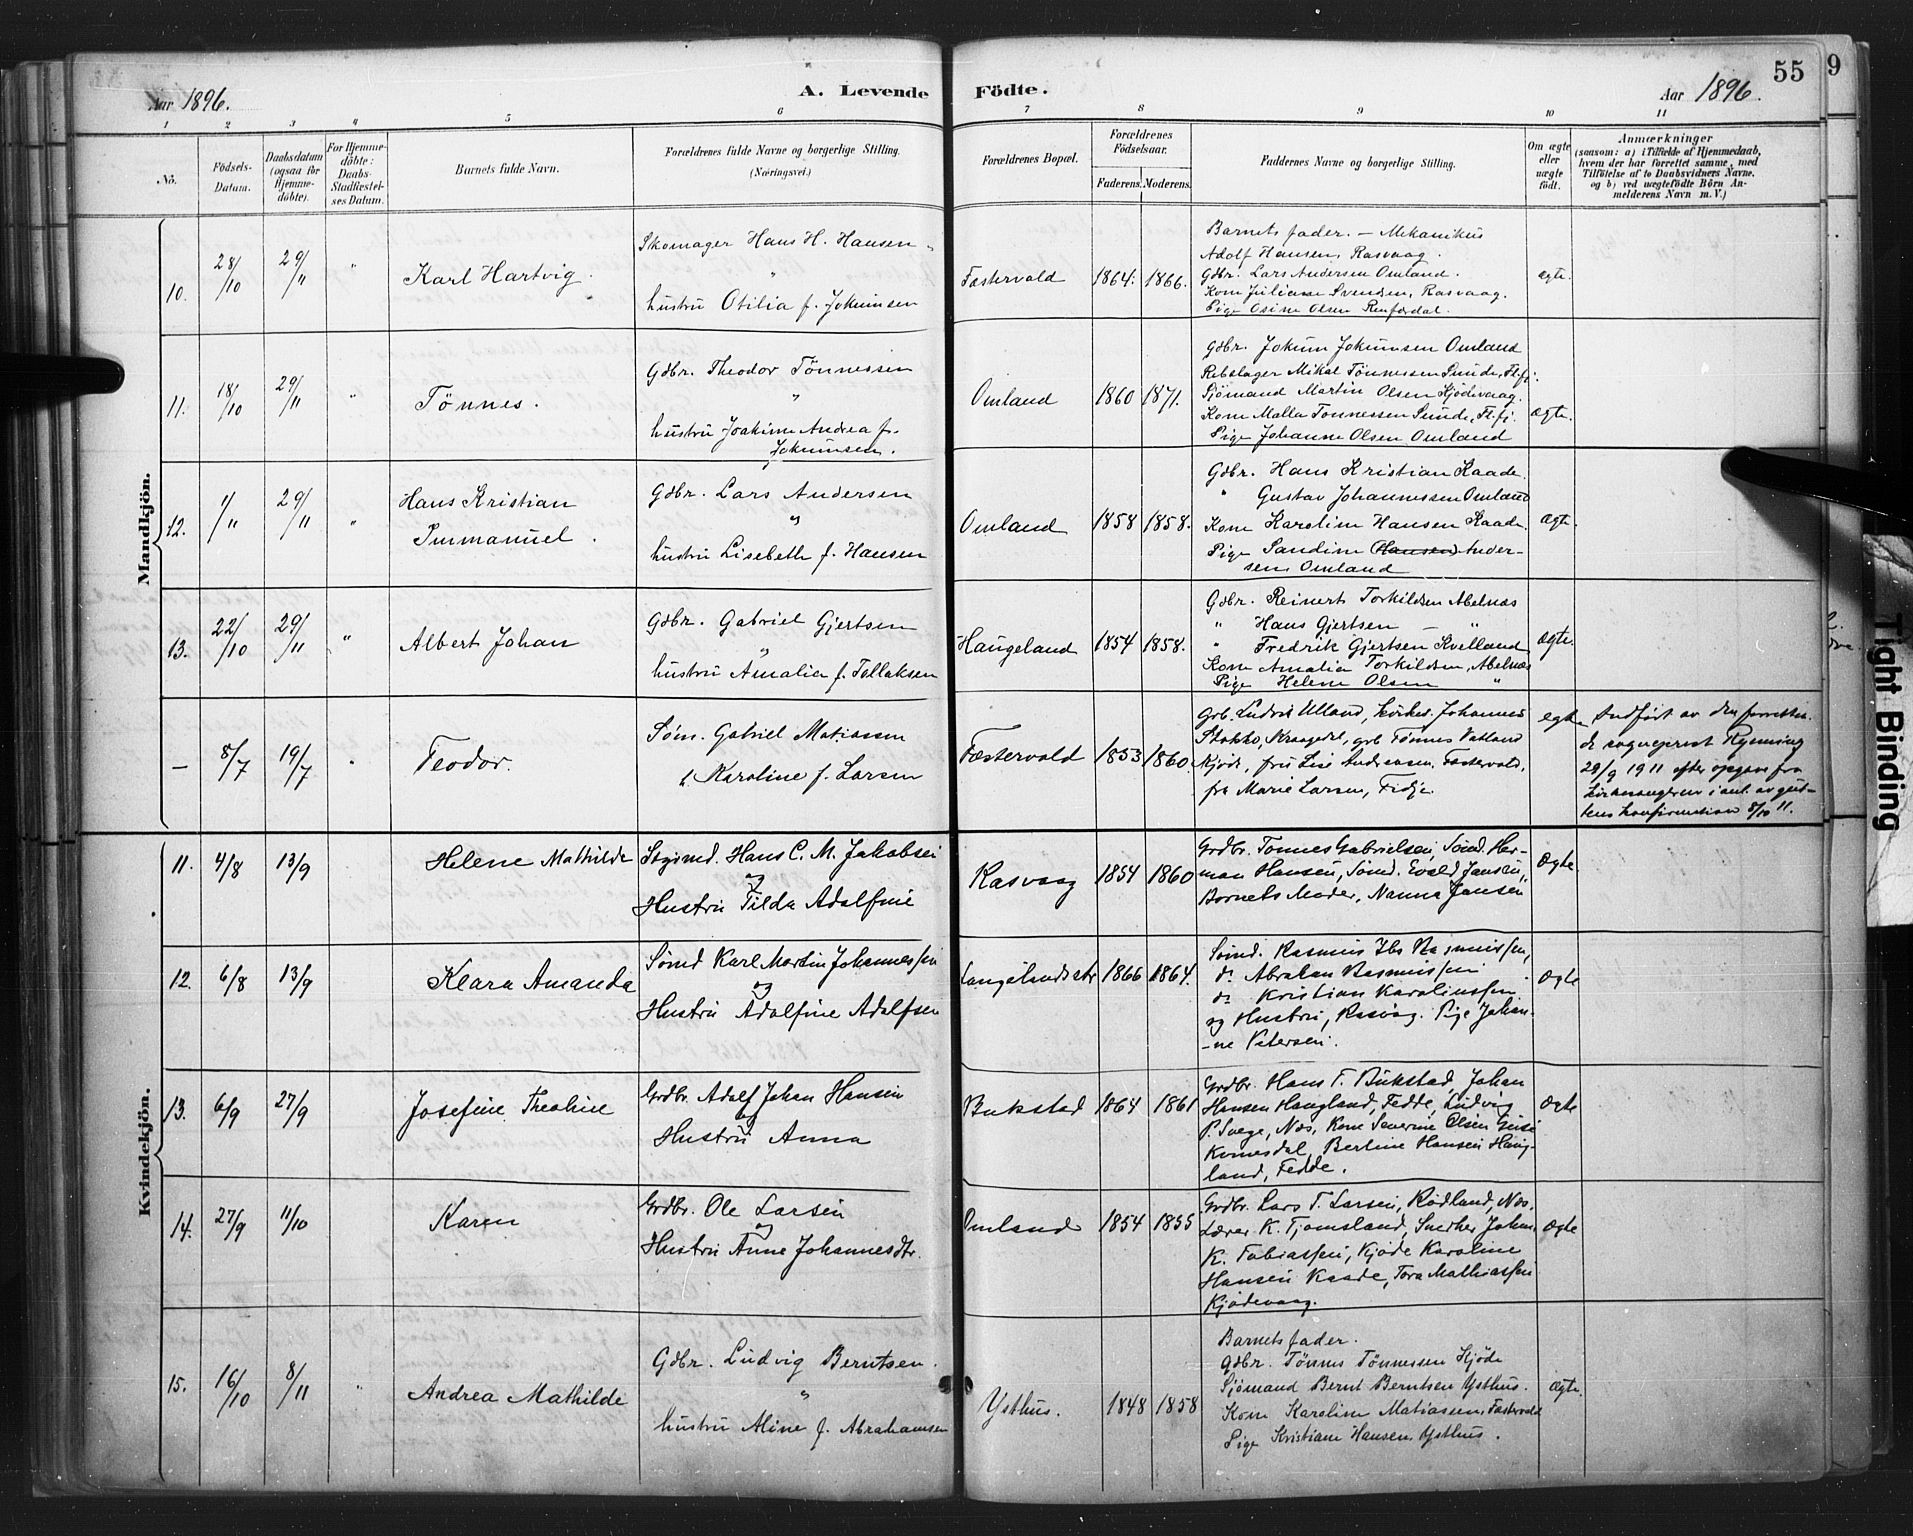 Aar 1896.
A. Levende Födte.
Aar 1896.
55
9
1 2 3 4 5 6 7 8 9 10 11
No.
Födsels-Datum.
Daabsdatum (ogsaa for Hjemme-döbte).
For Hjemme-döbte: Daabs-Stadfæstel-ses Datum.
Barnets fulde Navn.
Forældrenes fulde Navne og borgerlige Stilling.
(Næringsvei.)
Forældrenes Bopæl.
Forældrenes Födselsaar.
Faderens. Moderens.
Faddernes Navne og borgerlige Stilling.
Om ægte eller uægte födt.
Anmærkninger
(saasom: a) i Tilfælde af Hjemmedaab,
hvem der har forrettet samme, med
Tilföielse af to Daabsvidners Navne,
og b) ved uægtefödte Börn An-
melderens Navn m. V.)
Mandkjön.
10. 28/10 29/11 " Karl Hartvig.
Skomager Hans H. Hansen
"
hustru Otilia f. Jokumsen
Fæstervold 1864. 1866.
Barnets fader. — Mekanikus
Adolf Hansen, Rasvaag.
Gdbr. Lars Andersen Omland.
Kone Juliane Svendsen, Rasvaag.
Pige Osine Olsen
ægte.
11. 18/10 29/11 " Tönnes.
Gdbr. Theodor Tönnessen
"
hustru Joakime Andrea f.
Jokumsen.
Omland 1860 1871.
Gdbr. Jokum Jokumsen Omland
Rebslager Mikal Tönnessen Sunde, Fl.fj.
Sjömand Martin Olsen Kjödevaag.
Kone Malla Tönnessen Sunde, Fl.fj.
Pige Johanne Olsen Omland
ægte.
12. 1/11 29/11 " Hans Kristian
Immanuel.
Gdbr. Lars Andersen
og
hustru Lisebeth f. Hansen
Omland 1858 1858.
Gdbr. Hans Kristian Kaade.
" Gustav Johannessen Omland
Kone Karoline Hansen Kaade.
Pige Sandine Hansen Ander-
sen, Omland
ægte.
13. 22/10 29/11 " Albert Johan
Gdbr. Gabriel Gjertsen
"
hustru Amalia f. Tollaksen
Haugeland 1854 1858.
Gdbr. Reinert Torkildsen Abelnæs
" Hans Gjertsen — "
" Fredrik Gjertsen Kvelland
Kone Amalia Torkildsen, Abelnæs
Pige Helene Olsen "
ægte.
— 8/7 19/7 " Teodor.
Søm. Gabriel Matiassen
Karoline f. Larsen
Fæstervold 1853 1860.
Grb. Ludvik Ulland, Johannes
Stokko, grb Tønnes Vatland
Kjøde, fru Lise Andreasen, Fæstervold,
fr. Marie Larsen, Fidje.
egte
Indført av den forretten-
de sogneprest Rynning
28/9 1911 efter opgave fra
kirkesangeren i anl. av gut-
tens konfirmation 8/10 11.
Kvindekjön.
11. 4/8 13/9 Helene Mathilde
Stgsmd. Hans C. M. Jakobsen
og
Hustru Tilda Adolfine
Rasvaag 1854 1860
Grdbr. Tønnes Gabrielsen, Sømd. Her-
man Hansen, Sømd. Evald Jansen,
Barnets Moder, Nanna Jansen
Ægte
12. 6/8 13/9 Klara Amanda
Sømd Karl Martin Johannessen
og
Hustru Adolfine Adolfsen
1866 1864.
Sømd. Rasmus Ibs Rasmussen,
do Abraham Rasmussen
do Kristian Karoliussen
og Hustru, Rasvåg. Pige Johan-
-ne Petersen.
Ægte
13. 6/9 27/9 Josefine Theoline
Grdbr. Adolf Johan Hansen
og
Hustru Anna
Bukstad 1864 1861
Grdbr. Hans F. Bukstad, Johan
Hansen Haugland, Fedde, Ludvig
P. Svege, Næs, Kone Severine Olsen
Kvinesdal, Bertine Hansen Haug-
land, Fedde.
Ægte
14. 27/9 11/10 Karen
Grdbr. Ole Larsen
og
Hustru Anne Johannesdtr.
Omland 1854 1855
Grdbr. Lars T. Larsen, Rødland, Næs.
Lærer K. Tjomsland, Snerker Johan
K. Tobiassen, Kjøde Karoline
Hansen Kaade, Tora Mathiassen
Kjødevaag.
Ægte
15. 16/10 8/11 " Andrea Mathilde
Gdbr. Ludvig Berntsen.
"
hustru Aline f. Abrahamsen
Ysthus. 1848 1858
Barnets fader.
Gdbr. Tönnes Tönnessen Kjöde
Sjömand Bernt Berntsen Ysthus.
Kone Karoline Matiassen, Fæstervold
Pige Kristiane Hansen, Ysthus.
ægte.
Tight Binding